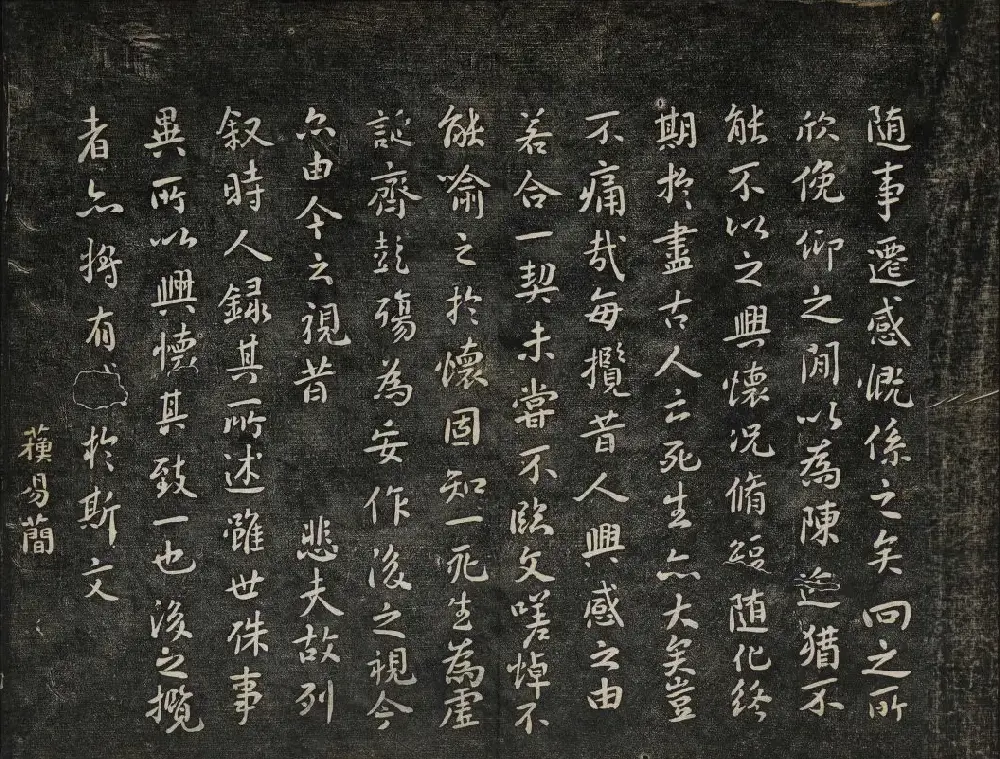 随事遷感慨係之矣向之所
欣俛仰之閒以為陳迹猶不
能不以之興懷况脩短随化終
期於盡古人云死生亦大矣豈
不痛哉每攬昔人興感之由
若合一契未嘗不臨文嗟悼不
能喻之於懷固知一死生為虛
誕齊彭殤為妄作後之視今
亦由今之視昔 悲夫故列
叙時人録其所述雖世殊事
異所以興懷其致一也後之攬
者亦將有於斯文
蘓易簡